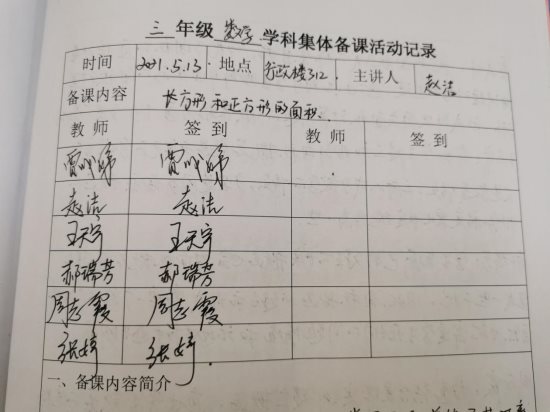 三 年级 数学 学科集体备课活动记录
时间 2021.5.13. 地点 行政楼312. 主讲人 赵洁
备课内容 长方形和正方形的面积.
教 师 签 到 教 师 签 到
赵洁 赵洁
王天宇 王天宇
郝瑞芳 郝瑞芳
周志霞 周志霞
张婷 张婷
一、备课内容简介